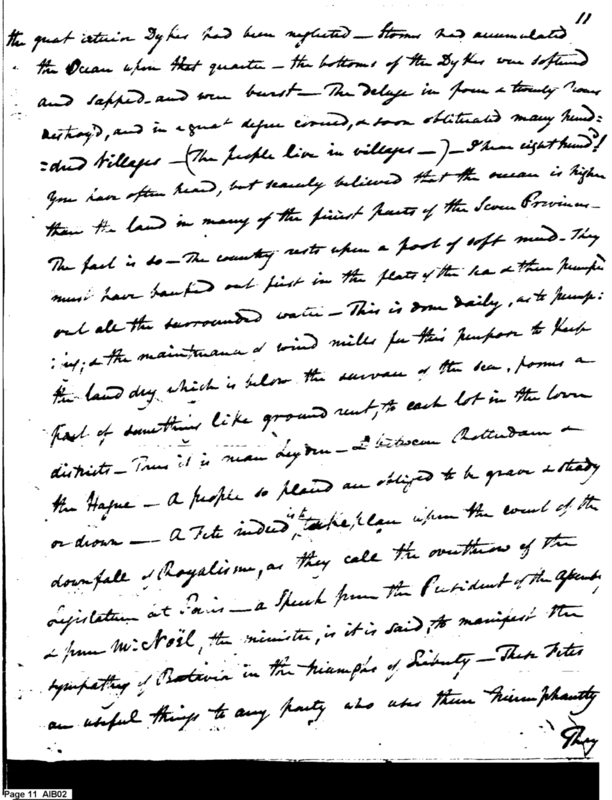 11
the great interior Dykes had been neglected — Storms had accumulated
the Ocean upon that quarter — the bottoms of the Dykes were softened
and sapped — and were burst — The deluge in four & twenty hours
destroy'd, and in a great degree covered, & soon obliterated many hund=
=dred Villages — (The people live in villages —) — I hear eight hund?!
You have often heard, but scarcely believed that the ocean is higher
than the land in many of the finest parts of the Seven Provinces —
The fact is so — The country rests upon a pool of soft mud — They
must have banked out first in the flats of the sea & then pumped
out all the surrounded water — This is done daily, as to pump:
:ing; & the maintenance of wind mills for this purpose to keep
the land dry which is below the surface of the sea, forms a
part of something like ground rent, to each lot in the town
districts — Thus it is near Leyden — & between Rotterdam &
the Hague — A people so placed are obliged to be grave & steady
or drown — A Fete indeed is to take place upon the event of the
downfall of Royalism, as they call the overthrow of the
Legislature at Paris — a Speech from the President of the Assembly
& from Mr. Noël, the minister, is it is said, to manifest the
sympathy of Batavia in the triumphs of Liberty — These Fetes
are useful things to any party who uses them triumphantly
They
Page 11 AIB02